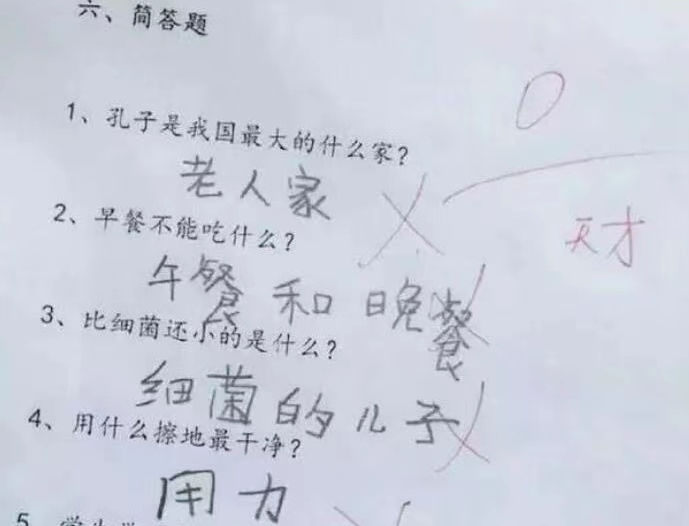 六、简答题
0
1、孔子是我国最大的什么家?
老人家
天才
2、早餐不能吃什么?
午餐和晚餐
3、比细菌还小的是什么?
细菌的儿子
4、用什么擦地最干净?
用力
5